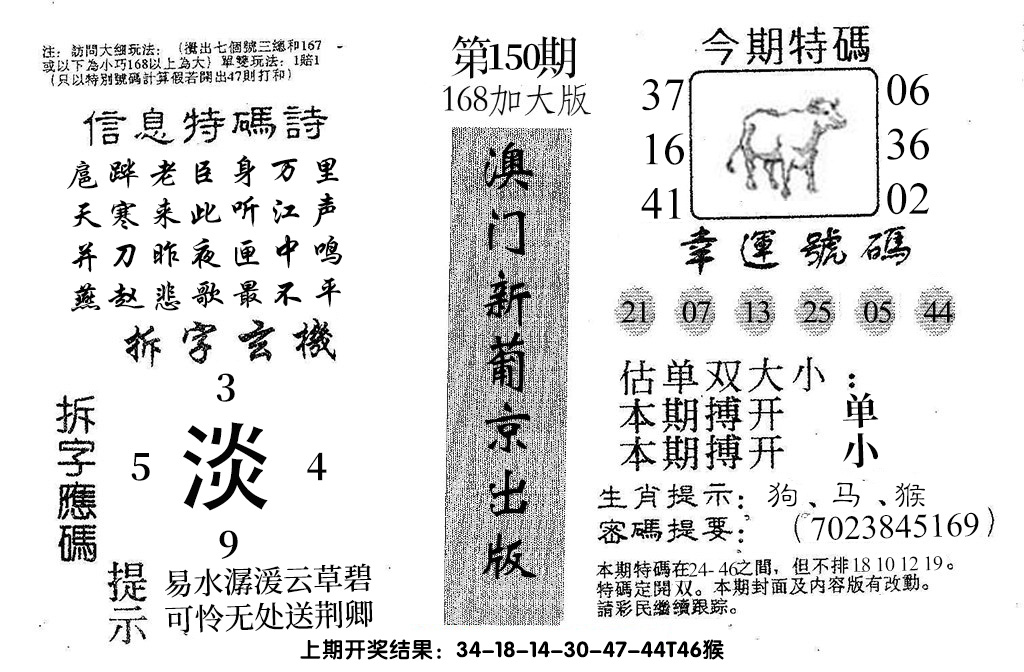 注：訪問大细玩法：（攪出七個號三總和167
或以下為小巧168以上為大）單雙玩法：1賠1
（只以特別號碼計算假若開出47則打和）
信息特碼詩
扈跸老臣身万里
天寒来此听江声
并刀昨夜匣中鸣
燕赵悲歌最不平
拆字玄機
拆字應碼
3
5 淡 4
9
提示
易水潺湲云草碧
可怜无处送荆卿
第150期
168加大版
澳门新葡京出版
今期特碼
37 06
16 36
41 02
幸運號碼
21 07 13 25 05 44
估单双大小：
本期搏开 单
本期搏开 小
生肖提示：狗、马、猴
密碼提要：（7023845169）
本期特碼在24-46之間，但不排18 10 12 19。
特碼定開双。本期封面及内容版有改動。
請彩民繼續跟踪。
上期开奖结果：34-18-14-30-47-44T46猴